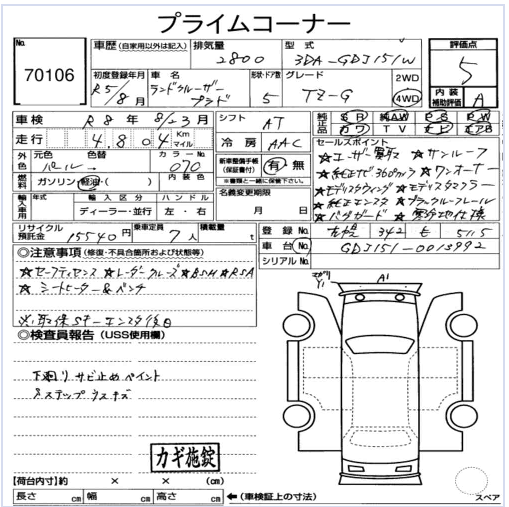 プライムコーナー
No.
70106
車歴 (自家用以外は記入) 排気量 2800 型式 3DA-GDJ151W
評価点 5
初度登録年月 R5/8月 車名 ランドクルーザープラド 形状・ドア数 5 グレード TZ-G 2WD 4WD
内装補助評価 A
車検 R8年8/23月
シフト AT
純正品 SR 純AW PS PW
カワ TV ナビ エアB
走行 4.804 Km マイル
冷房 AAC
セールスポイント
☆ユーザー買取 ☆サンルーフ
☆純正ナビ360カメラ ☆ワンオーナー
☆モデリスタウィング ☆モデリスタマフラー
☆純正エンスタ ☆ブラックルーフレール
外色 元色 パール 色替 カラーNo. 070
新車整備手帳 (保証書付) 有・無
※書類と一緒に保管下さい。
燃料 ガソリン・軽油・( ) 内装色
名義変更期限
月 日
輸入車用 年式 輸入区分 ハンドル
ディーラー・並行 左・右
リサイクル預託金 15540円 乗車定員 7人 積載量 t
登録No. 342 を 5115
車台No. GDJ151-0013992
シリアルNo.
◎注意事項 (修復・不具合箇所および状態等)
☆セーフティセンス ☆レーダークルーズ ☆BSM ☆RSA
☆シートヒーター&ベンチ
※取保スキーエンスタ後日
◎検査員報告 (USS使用欄)
下廻りサビ止めペイント
Sステップウスキズ
カギ施錠
A1
Y1
【荷台内寸】約 × × (cm)
長さ cm 幅 cm 高さ cm ←(車検証上の寸法)
スペア